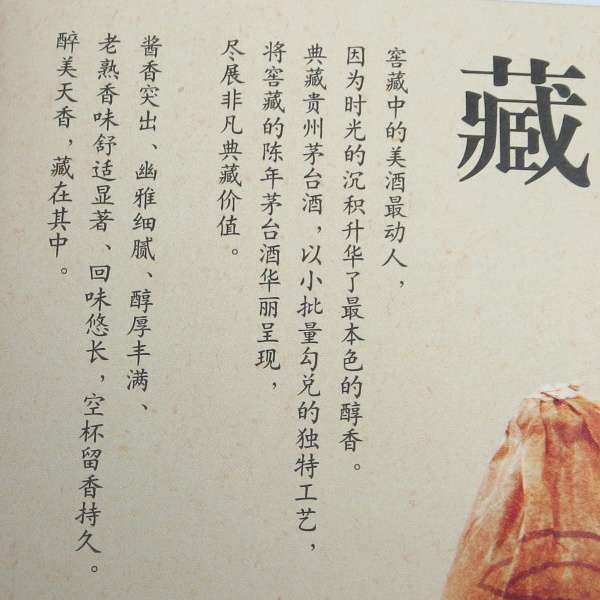 藏
窖藏中的美酒最动人，
因为时光的沉积升华了最本色的醇香。
典藏贵州茅台酒，以小批量勾兑的独特工艺，
将窖藏的陈年茅台酒华丽呈现，
尽展非凡典藏价值。
酱香突出、幽雅细腻、醇厚丰满、
老熟香味舒适显著、回味悠长，空杯留香持久。
醉美天香，藏在其中。